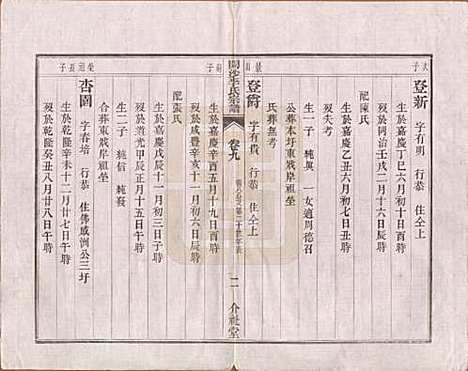 登新 字有明 行恭 住仝上
生於嘉慶丁巳六月初十日酉時
歿於同治壬戌二月十六日辰時
配陳氏
生於嘉慶乙丑六月初七日丑時
歿失考
生一子 純興 一女適周德召
公葬本圩東成岸祖塋
氏葬無考
登爵 字有貴 行恭 住仝上
生於嘉慶辛酉五月十九日酉時
歿於咸豐辛亥十一月初六日辰時
配張氏
生於嘉慶戊辰十一月初三日子時
歿於道光甲辰五月十五日午時
生二子 純信 純裘
合葬東成岸祖塋
杏園 字春培 行恭 住佛感洲公三圩
生於乾隆辛亥十二月二十日午時
歿於乾隆癸丑八月廿八日午時
卷九
二
介祉堂